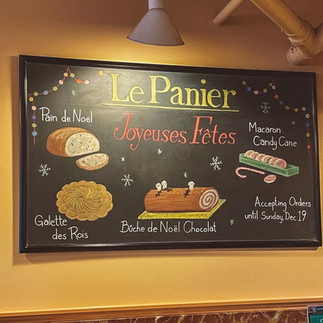 Le Panier
Joyeuses Fêtes
Pain de Noël
Macaron
Candy Cane
Galette
des Rois
Bûche de Noël Chocolat
Accepting Orders
until Sunday, Dec 19